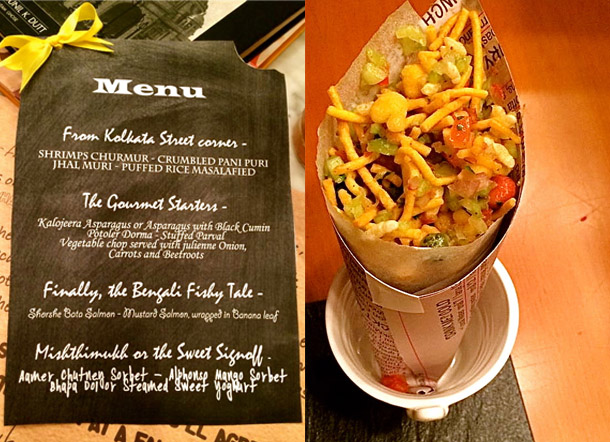 UNIL K. DUTT
Menu
From Kolkata Street corner -
SHRIMPS CHURMUR - CRUMBLED PANI PURI
JHAL MURI - PUFFED RICE MASALAFIED
The Gourmet Starters -
Kalojeera Asparagus or Asparagus with Black Cumin
Potoler Dorma - Stuffed Parval
Vegetable chop served with julienne Onion,
Carrots and Beetroots
Finally, the Bengali Fishy Tale -
Shorshe Bata Salmon - Mustard Salmon, wrapped in Banana leaf
Mishthimukh or the Sweet Signoff -
Aamer Chutney Sorbet - Alphonso Mango Sorbet
Bhapa Doi or Steamed Sweet Yoghurt